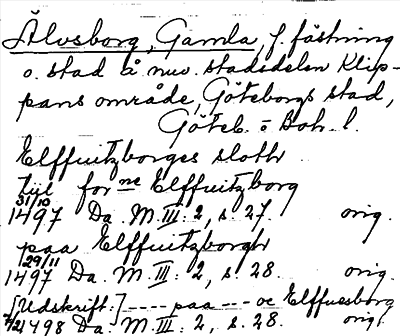 Älvsborg, Gamla, f. fästning
o. stad å nuv. stadsdelen Klip-
pans område, Göteborgs stad,
Göteb. o Boh. l.
Elffuitzborges sloth
till for ne Elffuitzborg
31/10
1497 Da. M. III: 2, s. 27. orig.
paa Elffuitzborgh
29/11
1497 Da. M. III: 2, s. 28. orig.
[Udskrift:] ---- paa --- oc Elffuesborg
1498 Da. M. III: 2, s. 28. orig.